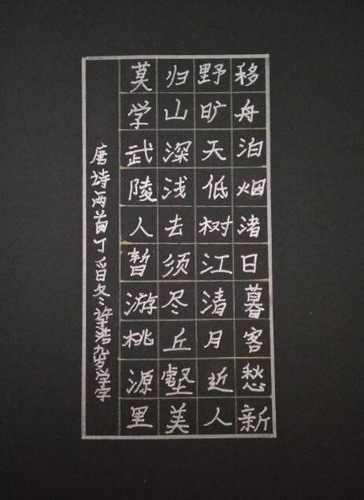 移舟泊烟渚日暮客愁新
野旷天低树江清月近人
归山深浅去须尽丘壑美
莫学武陵人暂游桃源里
唐诗两首丁酉冬许若九岁学字